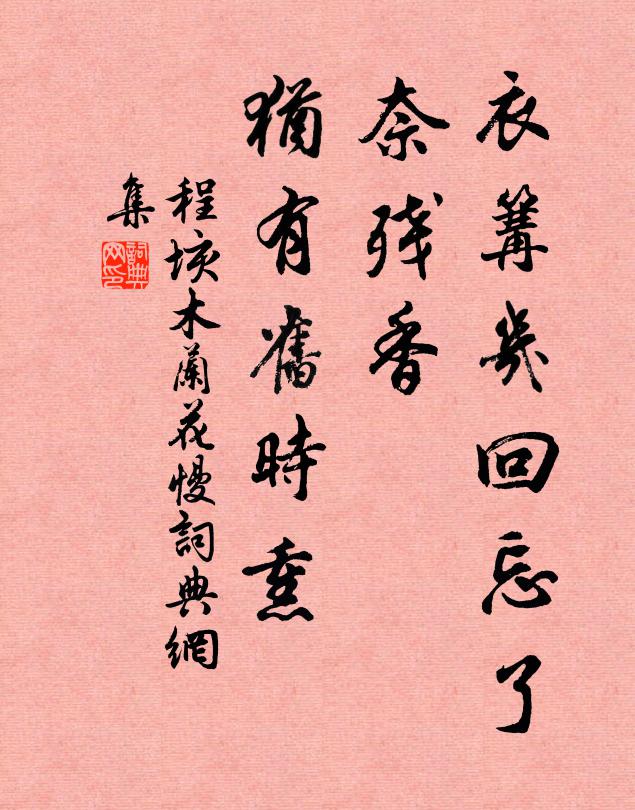 衣篝幾回忘了
奈残香
猶有舊時熏
程垓木蘭花慢詞典網
集
詞典
网印